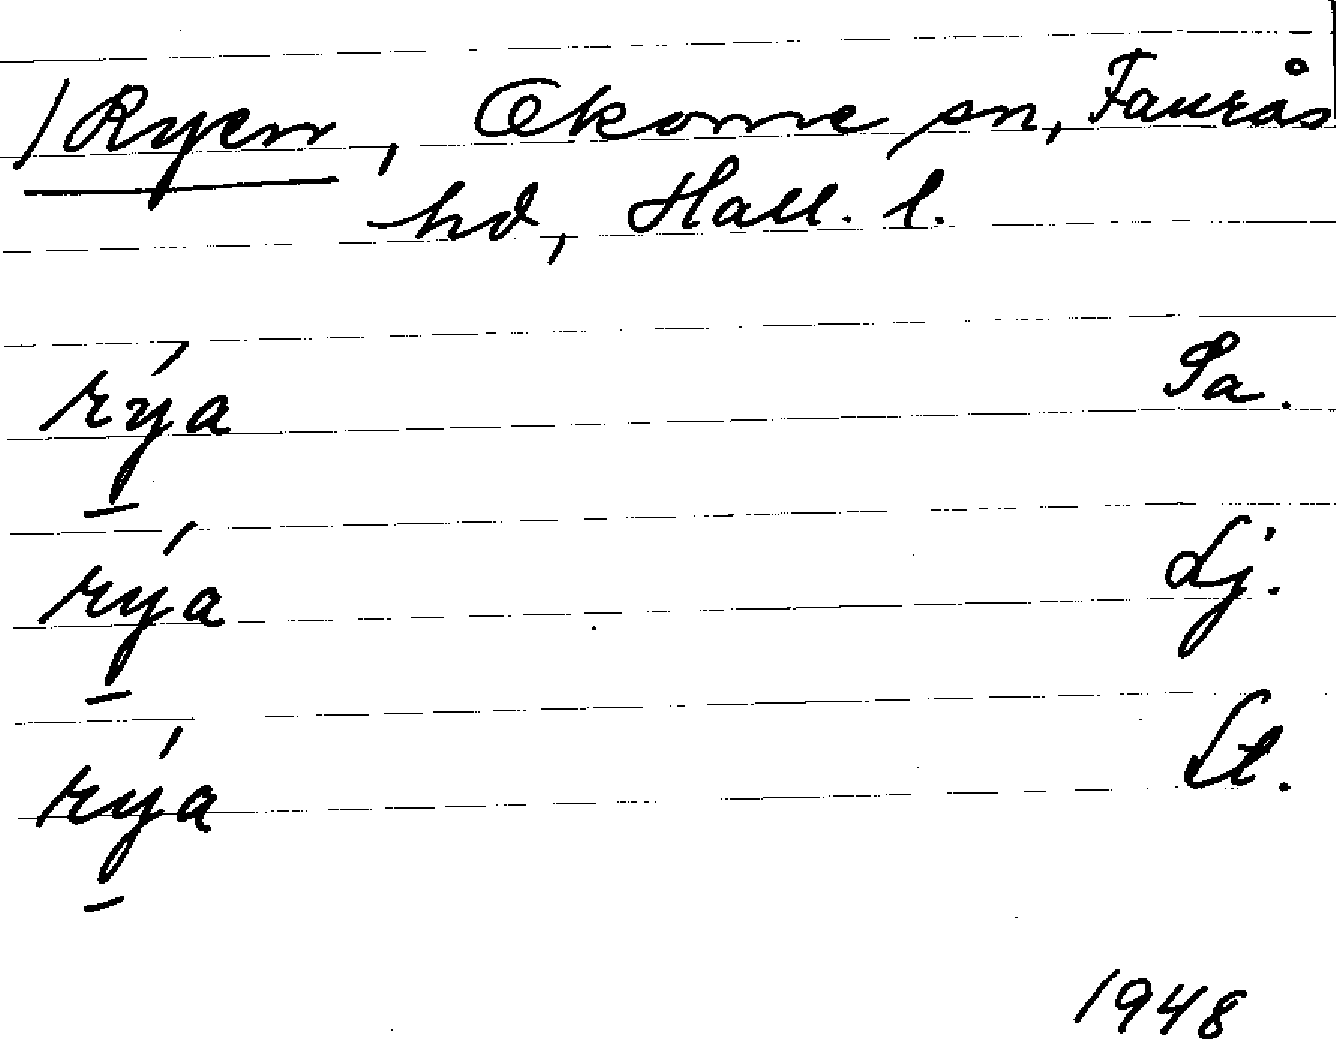 /Ryen, Okome sn, Faurås
hd, Hall. l.
rýa Sa.
rýa Lj.
rýa St.
1948